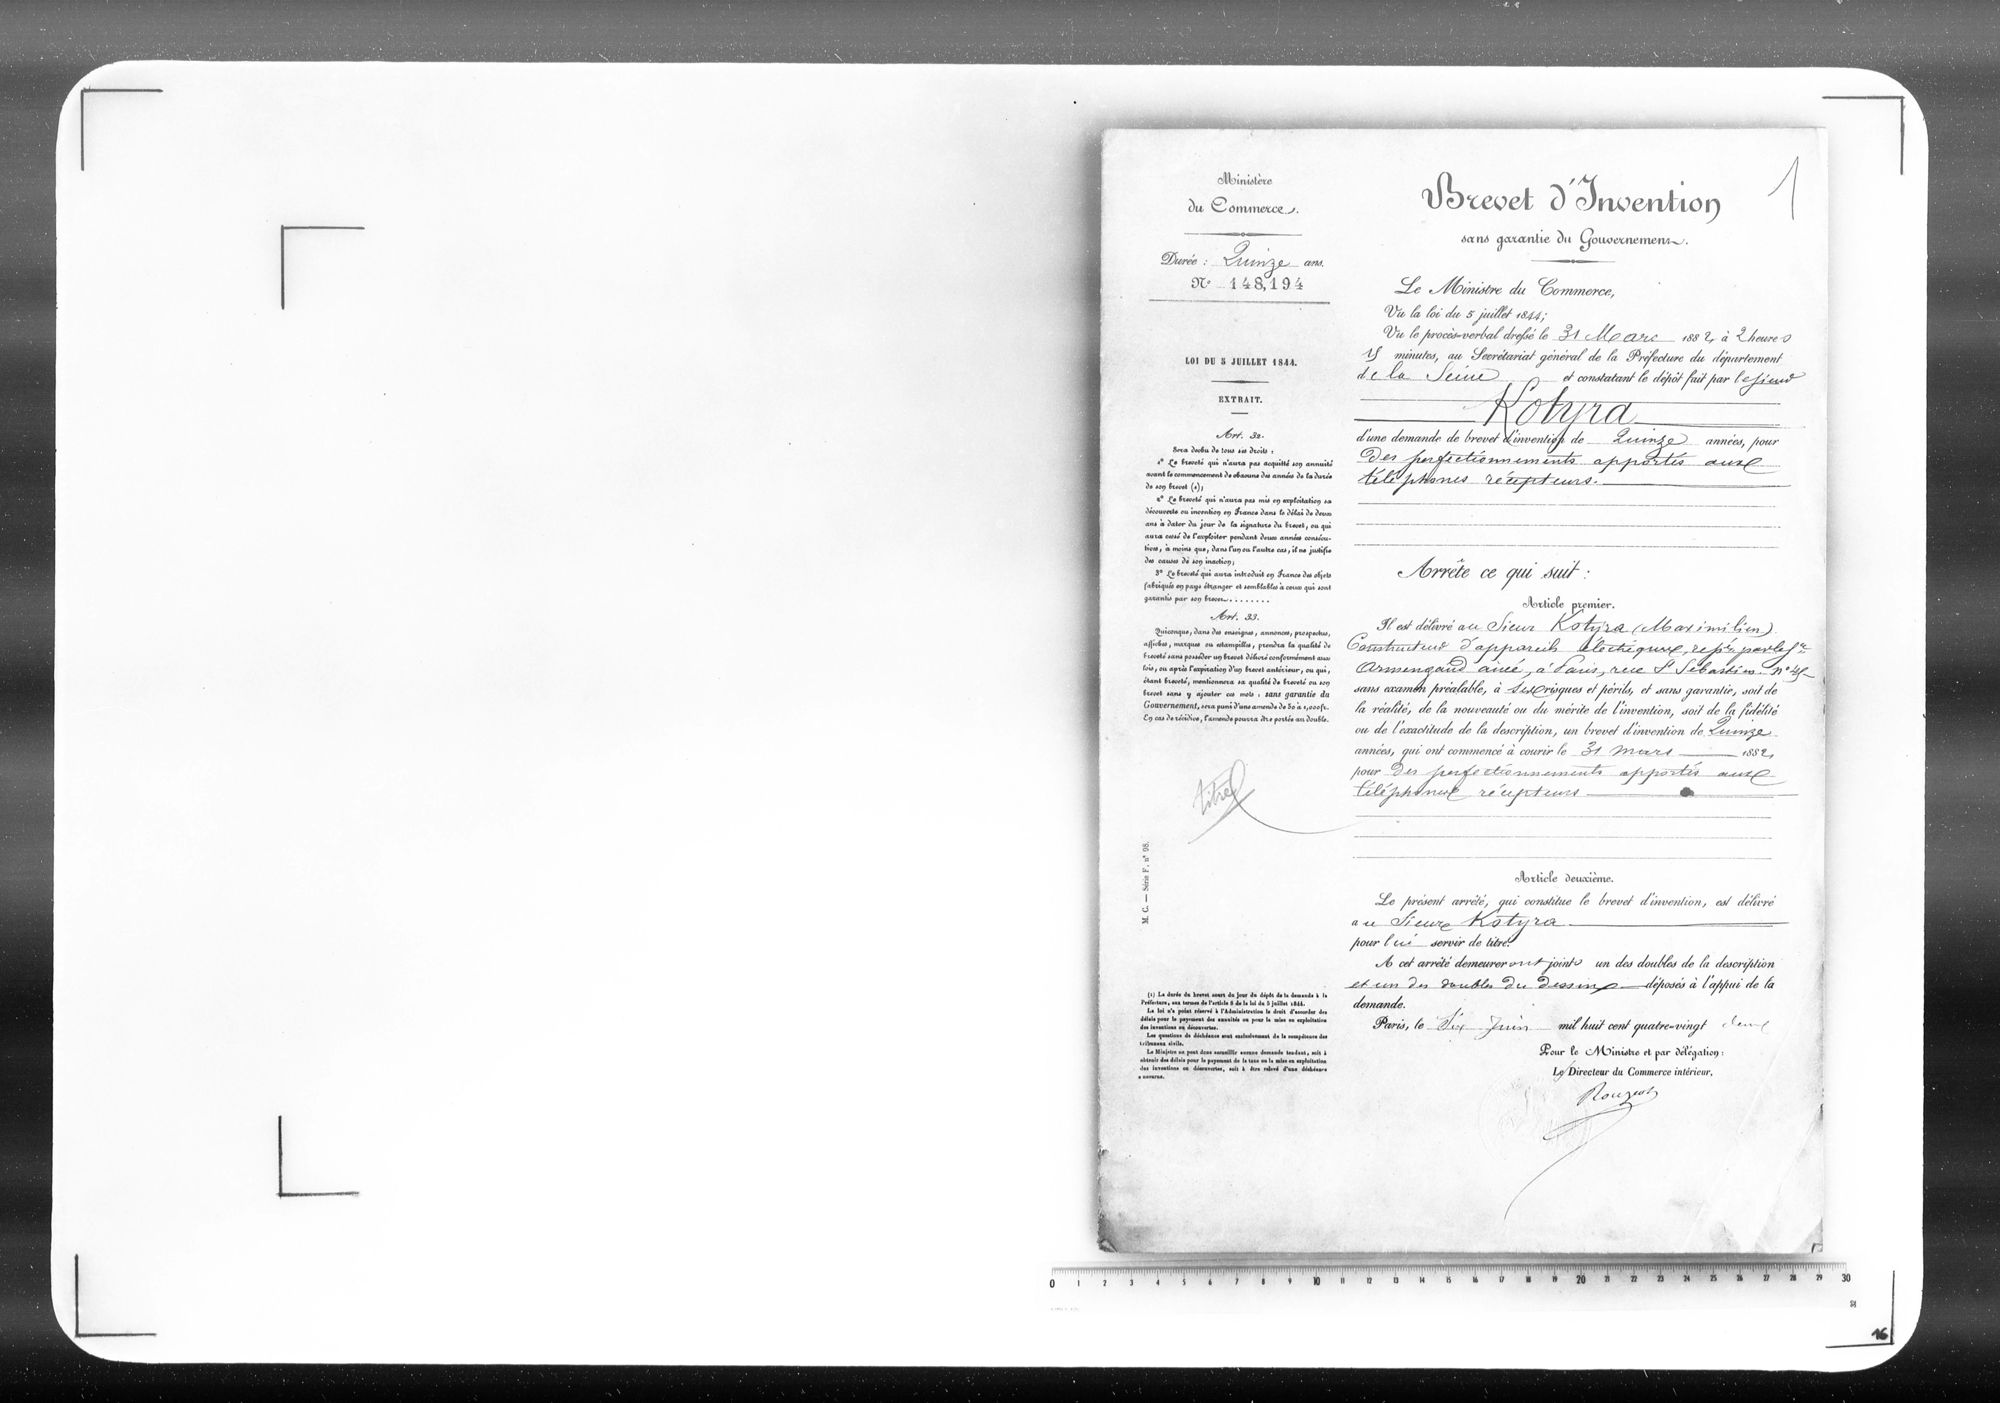 Ministère
du Commerce.
Durée : Quinze ans.
N° 148,194
LOI DU 5 JUILLET 1844.
EXTRAIT.
Art. 32.
Sera déchu de tous ses droits :
1° Le breveté qui n'aura pas acquitté son annuité
avant le commencement de chacune des années de la durée
de son brevet (1);
2° Le breveté qui n'aura pas mis en exploitation sa
découverte ou invention en France dans le délai de deux
ans à dater du jour de la signature du brevet, ou qui
aura cessé de l'exploiter pendant deux années consécu-
tives, à moins que, dans l'un ou l'autre cas, il ne justifie
des causes de son inaction;
3° Le breveté qui aura introduit en France des objets
fabriqués en pays étranger et semblables à ceux qui sont
garantis par son brevet........
Art. 33.
Quiconque, dans des enseignes, annonces, prospectus,
affiches, marques ou estampilles, prendra la qualité de
breveté sans posséder un brevet délivré conformément aux
lois, ou après l'expiration d'un brevet antérieur, ou qui,
étant breveté, mentionnera sa qualité de breveté ou son
brevet sans y ajouter ces mots : sans garantie du
Gouvernement, sera puni d'une amende de 50 à 1,000 fr.
En cas de récidive, l'amende pourra être portée au double.
titre
M. C. — Série F. n° 98.
(1) La durée du brevet court du jour du dépôt de la demande à la
Préfecture, aux termes de l'article 8 de la loi du 5 juillet 1844.
La loi n'a point réservé à l'Administration le droit d'accorder des
délais pour le payement des annuités ou pour la mise en exploitation
des inventions ou découvertes.
Les questions de déchéance sont exclusivement de la compétence des
tribunaux civils.
Le Ministre ne peut donc accueillir aucune demande tendant, soit à
obtenir des délais pour le payement de la taxe ou la mise en exploitation
des inventions ou découvertes, soit à être relevé d'une déchéance
encourue.
1
Brevet d'Invention
sans garantie du Gouvernement.
Le Ministre du Commerce,
Vu la loi du 5 juillet 1844;
Vu le procès-verbal dressé le 31 Mars 1882, à 2 heures
15 minutes, au Secrétariat général de la Préfecture du département
de la Seine et constatant le dépôt fait par le Sieur
Kotyra
d'une demande de brevet d'invention de Quinze années, pour
des perfectionnements apportés aux
téléphones récepteurs.
Arrête ce qui suit :
Article premier.
Il est délivré au Sieur Kotyra (Maximilien)
Constructeur d'appareils électriques, rep.té par le S.r
Armengaud aîné, à Paris, rue St Sébastien n° 45
sans examen préalable, à ses risques et périls, et sans garantie, soit de
la réalité, de la nouveauté ou du mérite de l'invention, soit de la fidélité
ou de l'exactitude de la description, un brevet d'invention de Quinze
années, qui ont commencé à courir le 31 mars 1882,
pour des perfectionnements apportés aux
téléphones récepteurs
Article deuxième.
Le présent arrêté, qui constitue le brevet d'invention, est délivré
au Sieur Kotyra
pour lui servir de titre.
A cet arrêté demeureront joints un des doubles de la description
et un des doubles du dessin déposés à l'appui de la
demande.
Paris, le Six Juin mil huit cent quatre-vingt deux
Pour le Ministre et par délégation :
Le Directeur du Commerce intérieur,
0 1 2 3 4 5 6 7 8 9 10 11 12 13 14 15 16 17 18 19 20 21 22 23 24 25 26 27 28 29 30
16